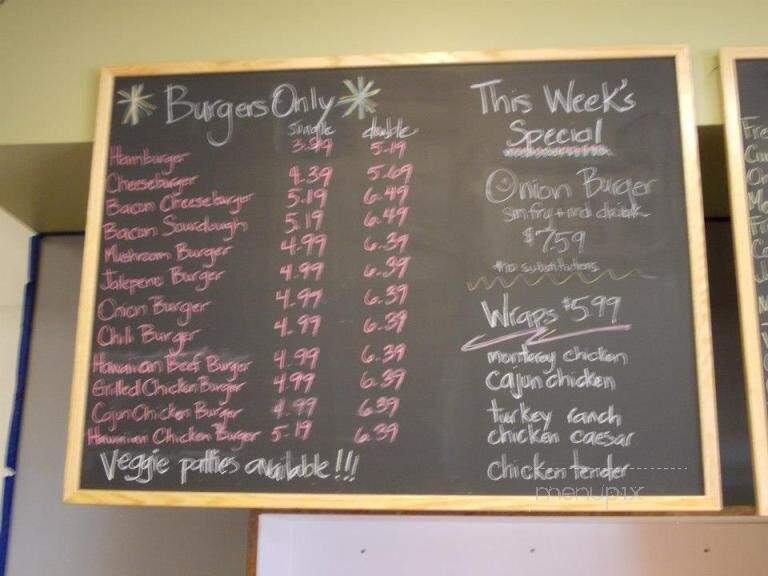 Burgers Only
single double
Hamburger 5.19
Cheeseburger 4.39 5.69
Bacon Cheeseburger 5.19 6.49
Bacon Sourdough 5.19 6.49
Mushroom Burger 4.99 6.39
Jalepeno Burger 4.99 6.39
Onion Burger 4.99 6.39
Chili Burger 4.99 6.39
Hawaiian Beef Burger 4.99 6.39
Grilled Chicken Burger 4.99 6.39
Cajun Chicken Burger 4.99 6.39
Hawaiian Chicken Burger 5.19 6.39
Veggie patties available!!!
This Week's
Special
Onion Burger
sm fry + md drink
$7.59
*no substitutions
Wraps $5.99
monterey chicken
cajun chicken
turkey ranch
chicken caesar
chicken tender
menupix